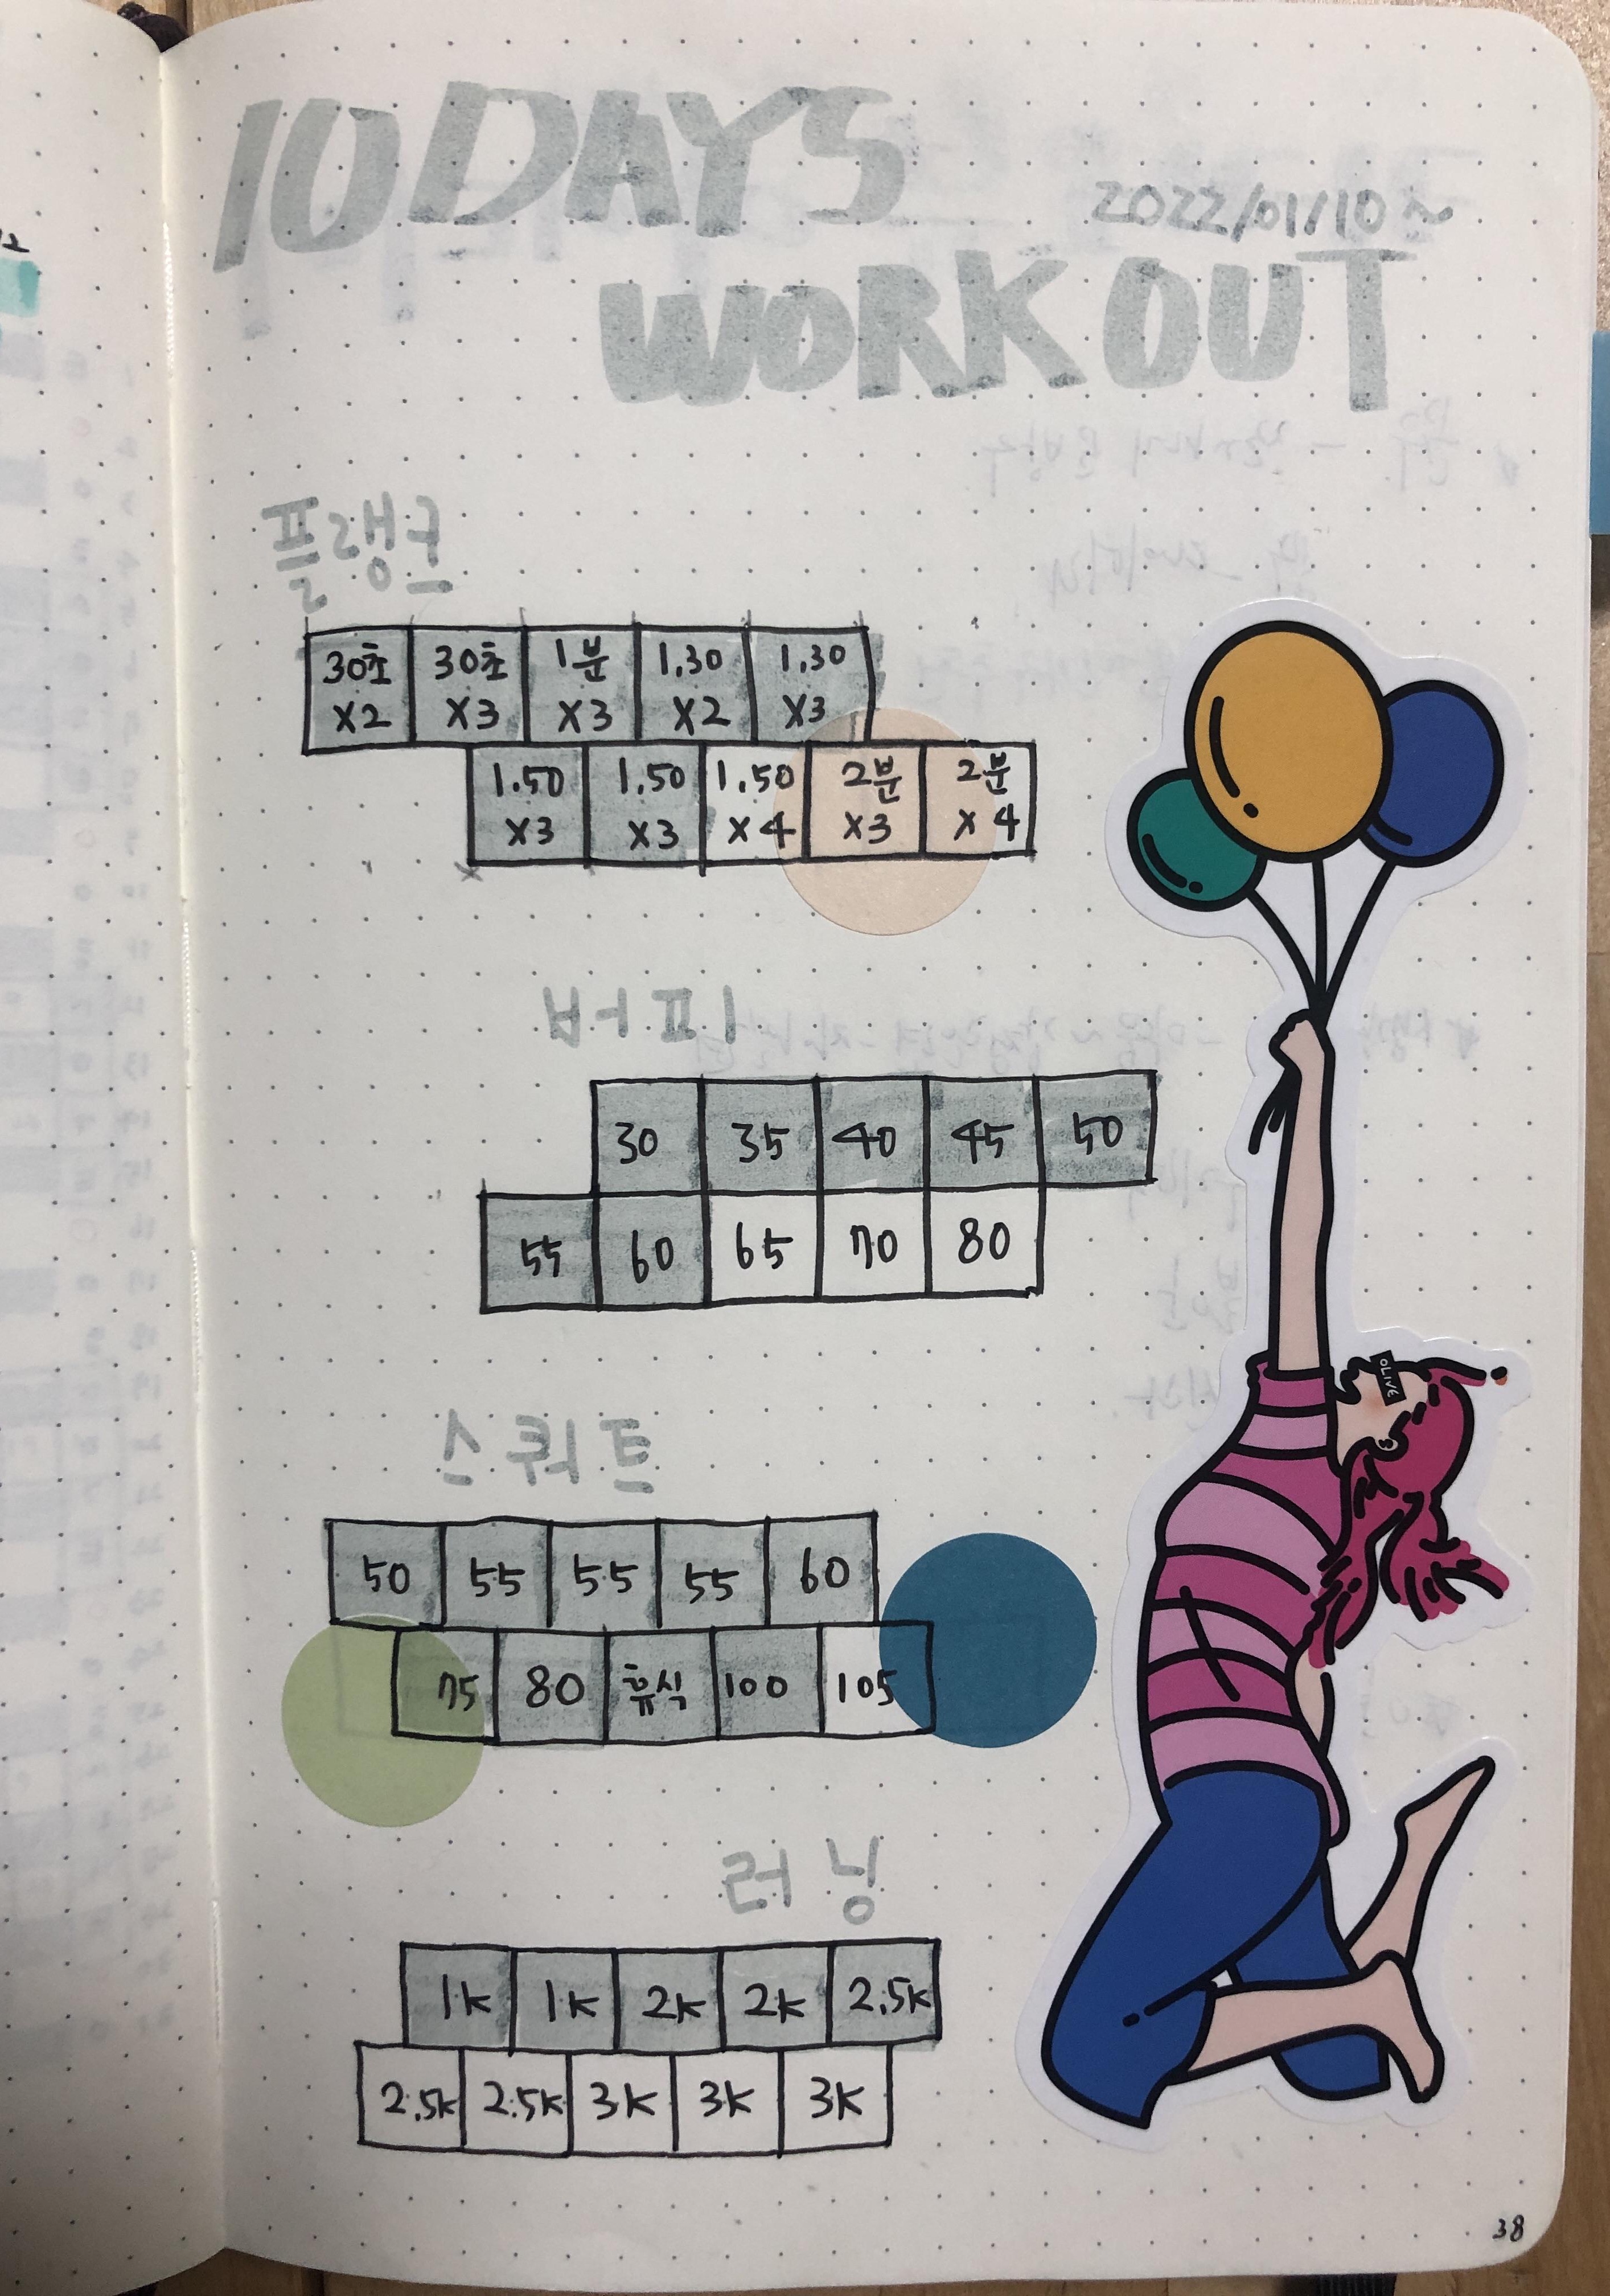 10 DAYS
2022/01/10~
WORK OUT
플랭크
30초 30초 1분 1.30 1.30
X2 X3 X3 X2 X3
1.50 1.50 1.50 2분 2분
X3 X3 X4 X3 X4
버피
30 35 40 45 50
55 60 65 70 80
스쿼트
50 55 55 55 60
75 80 휴식 100 105
러닝
1K 1K 2K 2K 2.5K
2.5K 2.5K 3K 3K 3K
OLIVE
38